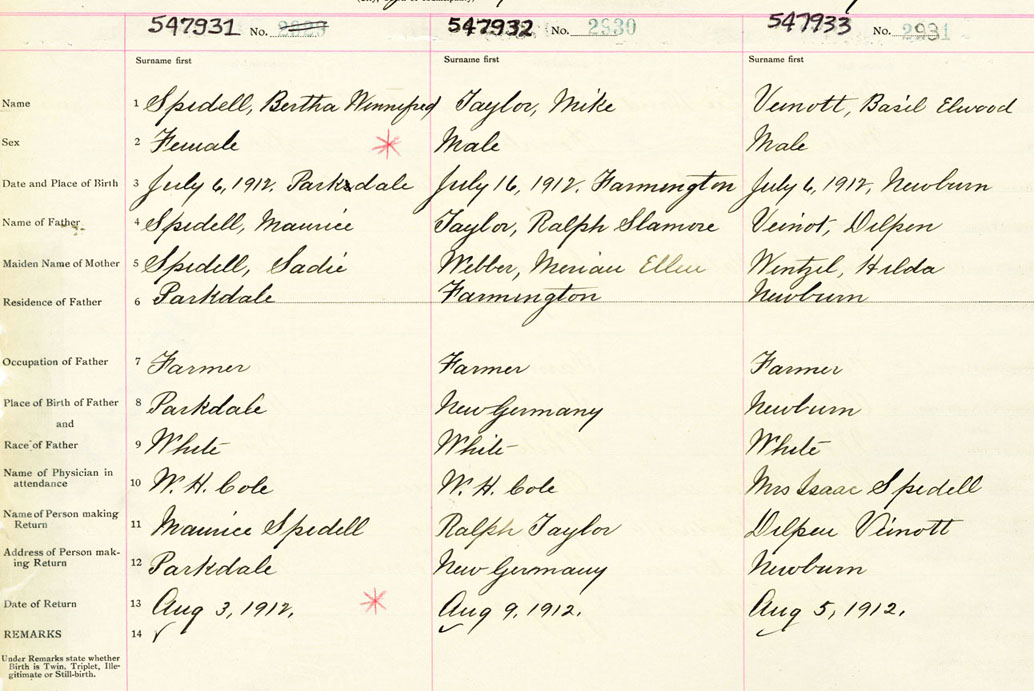 547931 No. 2929 547932 No. 2930 547933 No. 2931
Surname first Surname first Surname first
Name 1 Spidell, Bertha Winnifred Taylor, Mike Veinott, Basil Elwood
Sex 2 Female Male Male
Date and Place of Birth 3 July 6, 1912. Parksdale July 16, 1912. Farmington July 6, 1912, Newburn
Name of Father 4 Spidell, Maurice Taylor, Ralph Slamore Veinot, Delpen
Maiden Name of Mother 5 Spidell, Sadie Webber, Meriau Ellen Wentzel, Hilda
Residence of Father 6 Parkdale Farmington Newburn
Occupation of Father 7 Farmer Farmer Farmer
Place of Birth of Father 8 Parkdale New Germany Newburn
and
Race of Father 9 White White White
Name of Physician in
attendance 10 W. H. Cole W. H. Cole Mrs Isaac Spidell
Name of Person making
Return 11 Maurice Spidell Ralph Taylor Delpen Veinott
Address of Person mak-
ing Return 12 Parkdale New Germany Newburn
Date of Return 13 Aug 3, 1912. Aug 9, 1912. Aug 5, 1912.
REMARKS 14
Under Remarks state whether
Birth is Twin, Triplet, Ille-
gitimate or Still-birth.